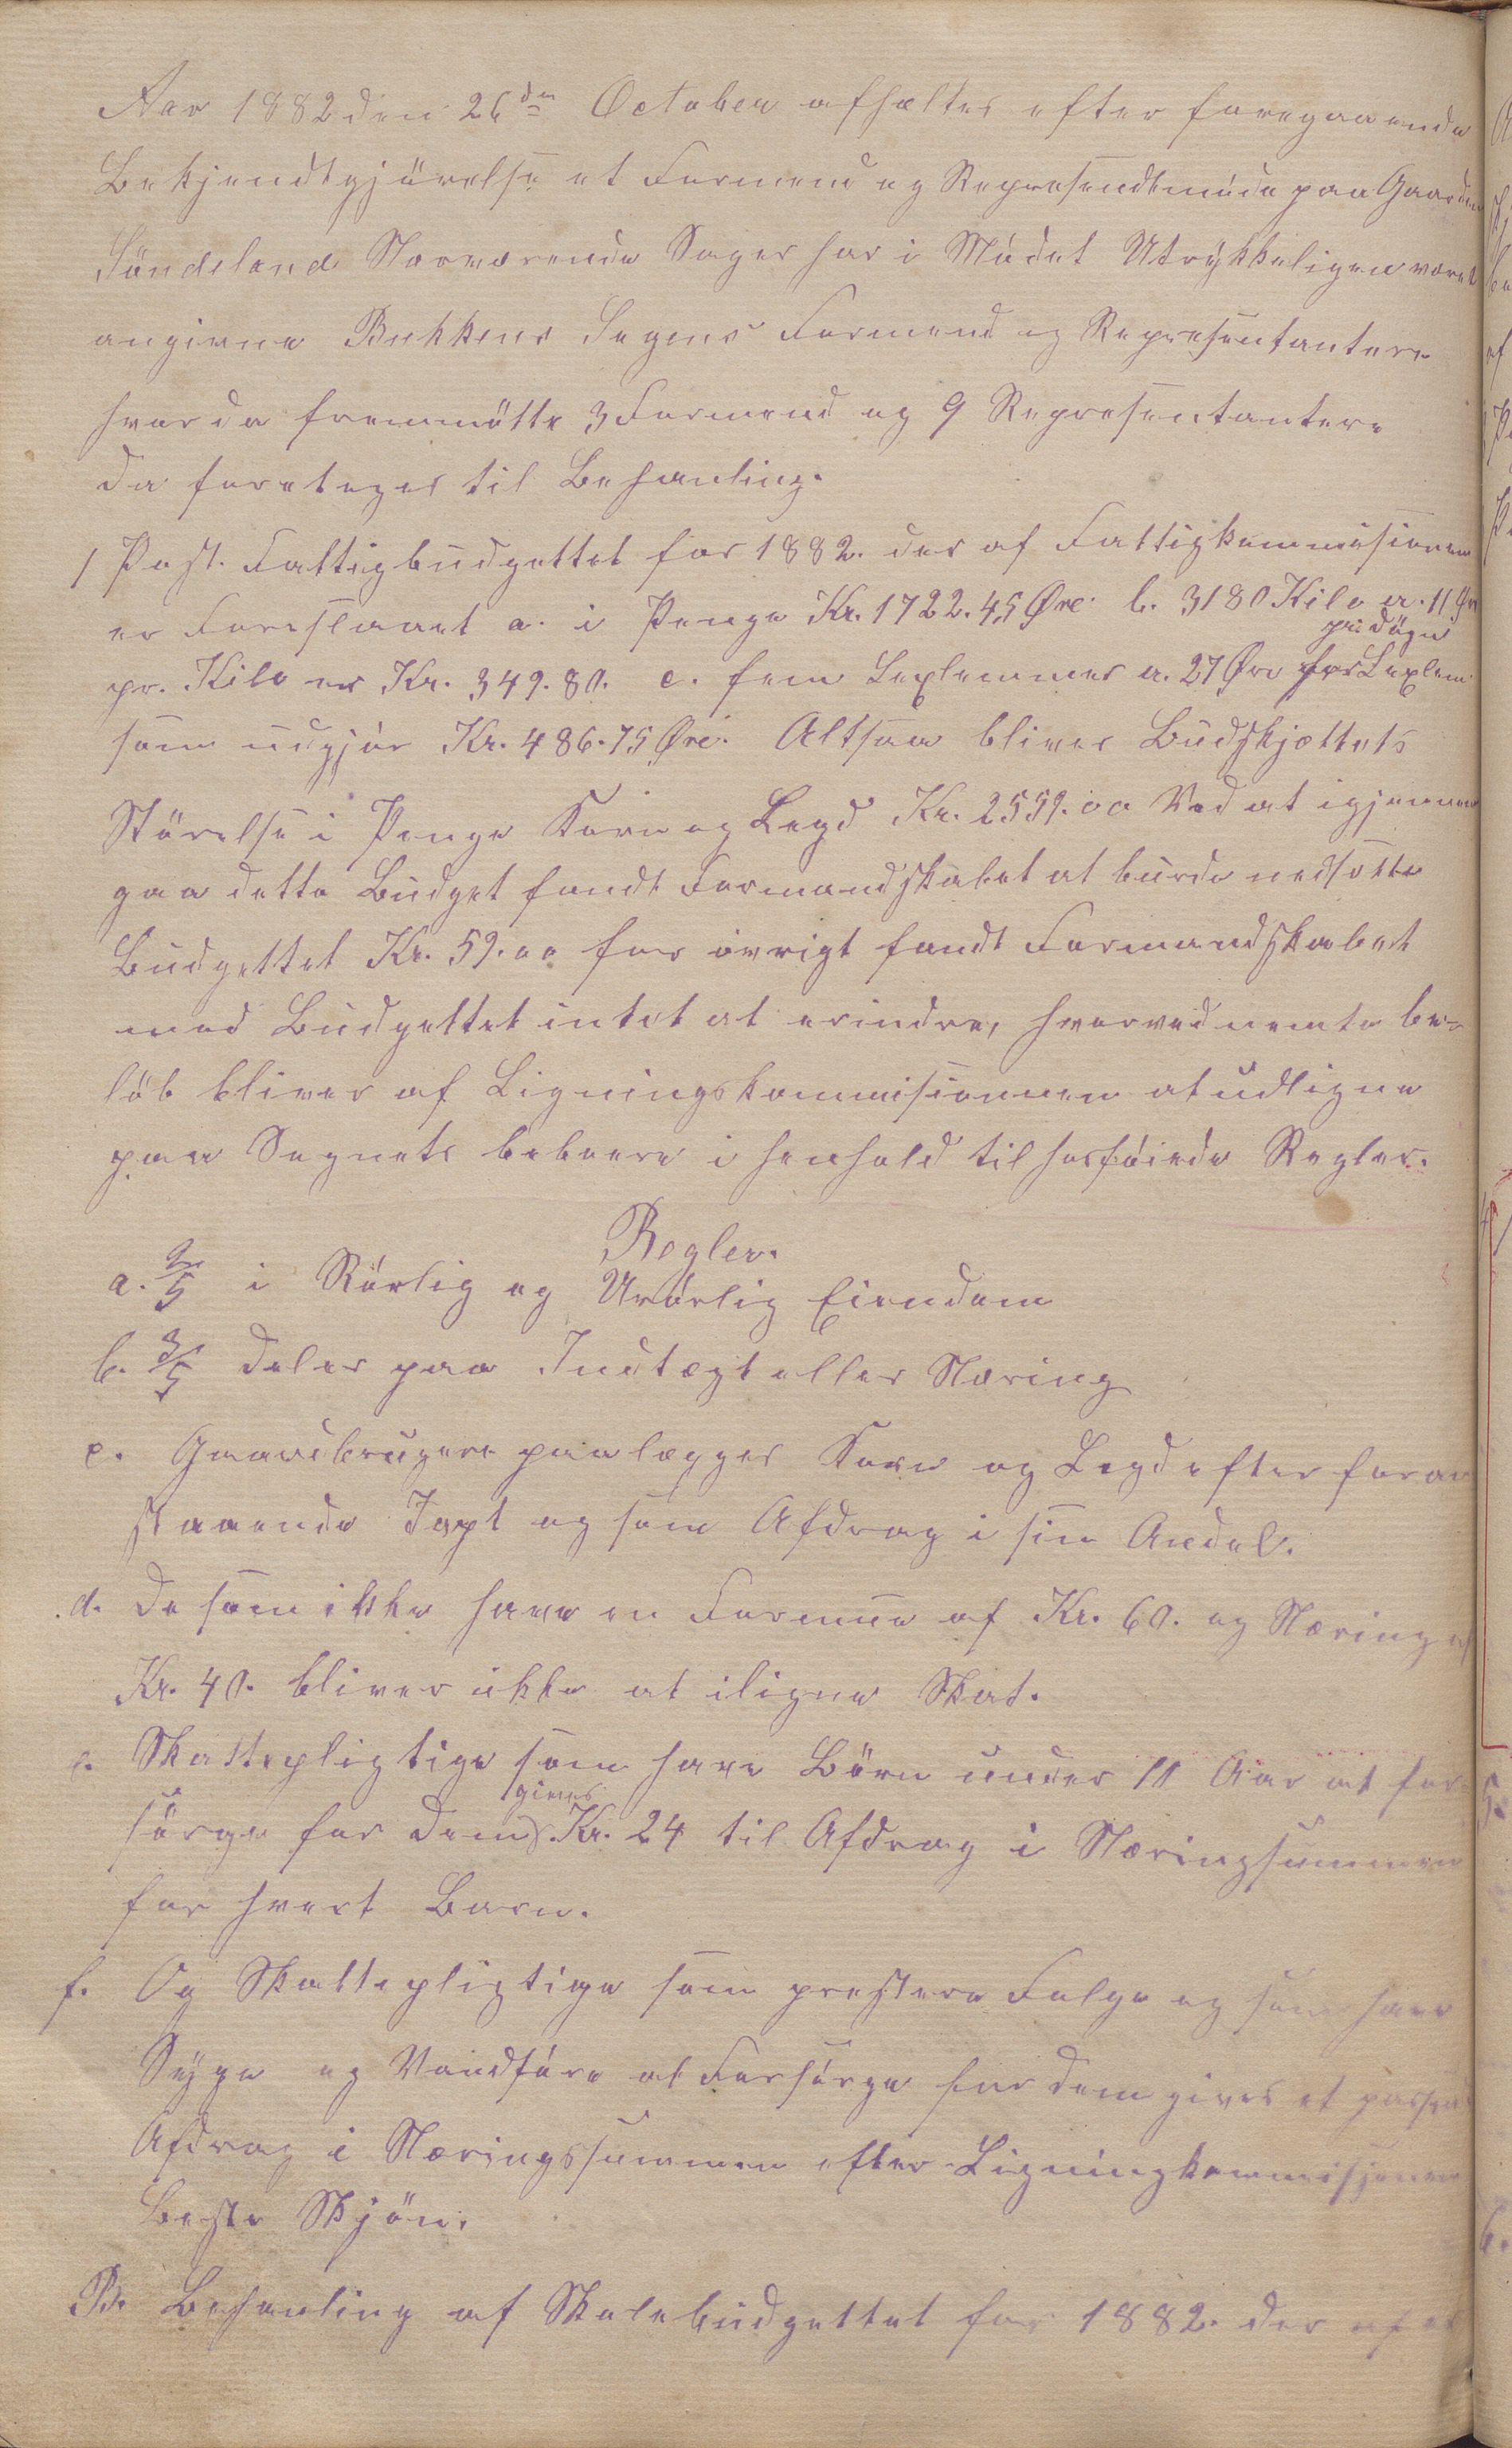 Aar 1882 den 26de October afholtes efter foregaaende
Bekjendtgjörelse et Formend og Represendtmöde paa Gaarden
Söndeland Nærværende Sager har i Mödet Utrykkeligen været
angivne Bukkens Sogens Formend og Representantere
hvor da fremmötte 3 Formend og 9 Representantere
da foretoges til Behanling.
1 Post. Fattigbudgettet for 1882. der af Fattigkommisionen
er Foreslaaet a. i Penge Kr. 1722.45 Øre. b. 3180 Kilo a. 11 Øre
pr. Kilo er Kr. 349.80. c. fem Leglemmer a. 27 Øre pri dögn for Leglem
som udgjör Kr. 486.75 Øre. Altsaa bliver Budskjættets
Störelse i Penge Korn og Legd Kr. 2559.00 Ved at igjennem
gaa dette Budget fandt Formandskabet at burde nedsette
Budgettet Kr. 59.00 for övrigt fandt Formandskabet
med Budgettet intet at erindre, hvorved nemte be-
löb bliver af Ligningskommisionen at udligne
paa Sognets beboere i henhold til hosföiede Regler.
Regler.
a. 2/5 i Rörlig og Urörlig Eiendom
b. 3/5 deler paa Indtægt eller Næring
c. Gaardbrugere paalægges Korn og Legd efter foran
staaende Taxt og som Afdrag i sin Andel.
d. de som ikke have en Formue af Kr. 60. og Næring af
Kr. 40. bliver ikke at iligne Skat.
e. Skattepligtige som have Börn under 10 Aar at for
sörge for dem gives Kr. 24 til Afdrag i Næringsummen
for hvert Barn.
f. Og Skattepligtige som prestere Folge og som have
Syge og Vandföre at Forsörge for dem gives et passende
Afdrag i Næringssummen efter Ligningkommisjonens
Beste Skjön.
B. Behanling af Skolebudgettet for 1882. der af